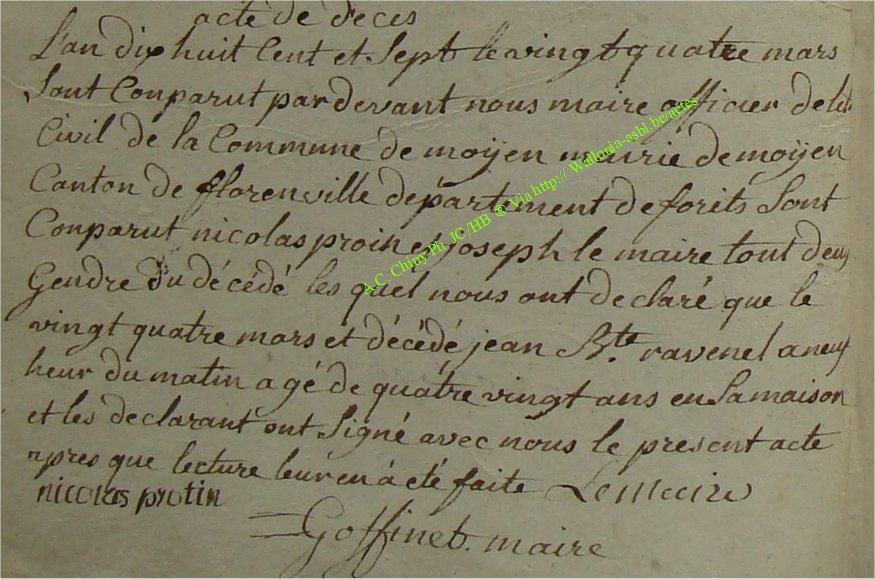 acte de deces
L'an dix huit Cent et Sept le vingt quatre mars
Sont Conparut par devant nous maire officier de let
Civil de la Commune de moÿen mairie de moÿen
Canton de florenville département de forets Sont
Conparut nicolas proin et joseph le maire tout deux
Gendre du décédé les quel nous ont declaré que le
vingt quatre mars et décédé jean Bte. ravenel a neuf
heur du matin agé de quatre vingt ans en Sa maison
et les declarant ont Signé avec nous le present acte
apres que lecture leur en á eté faite Lemeire
nicolas protin
Goffinet. maire
A.C. Chiny Ph. JC/HB @ Via http:// Wallonia-asbl.be/actes